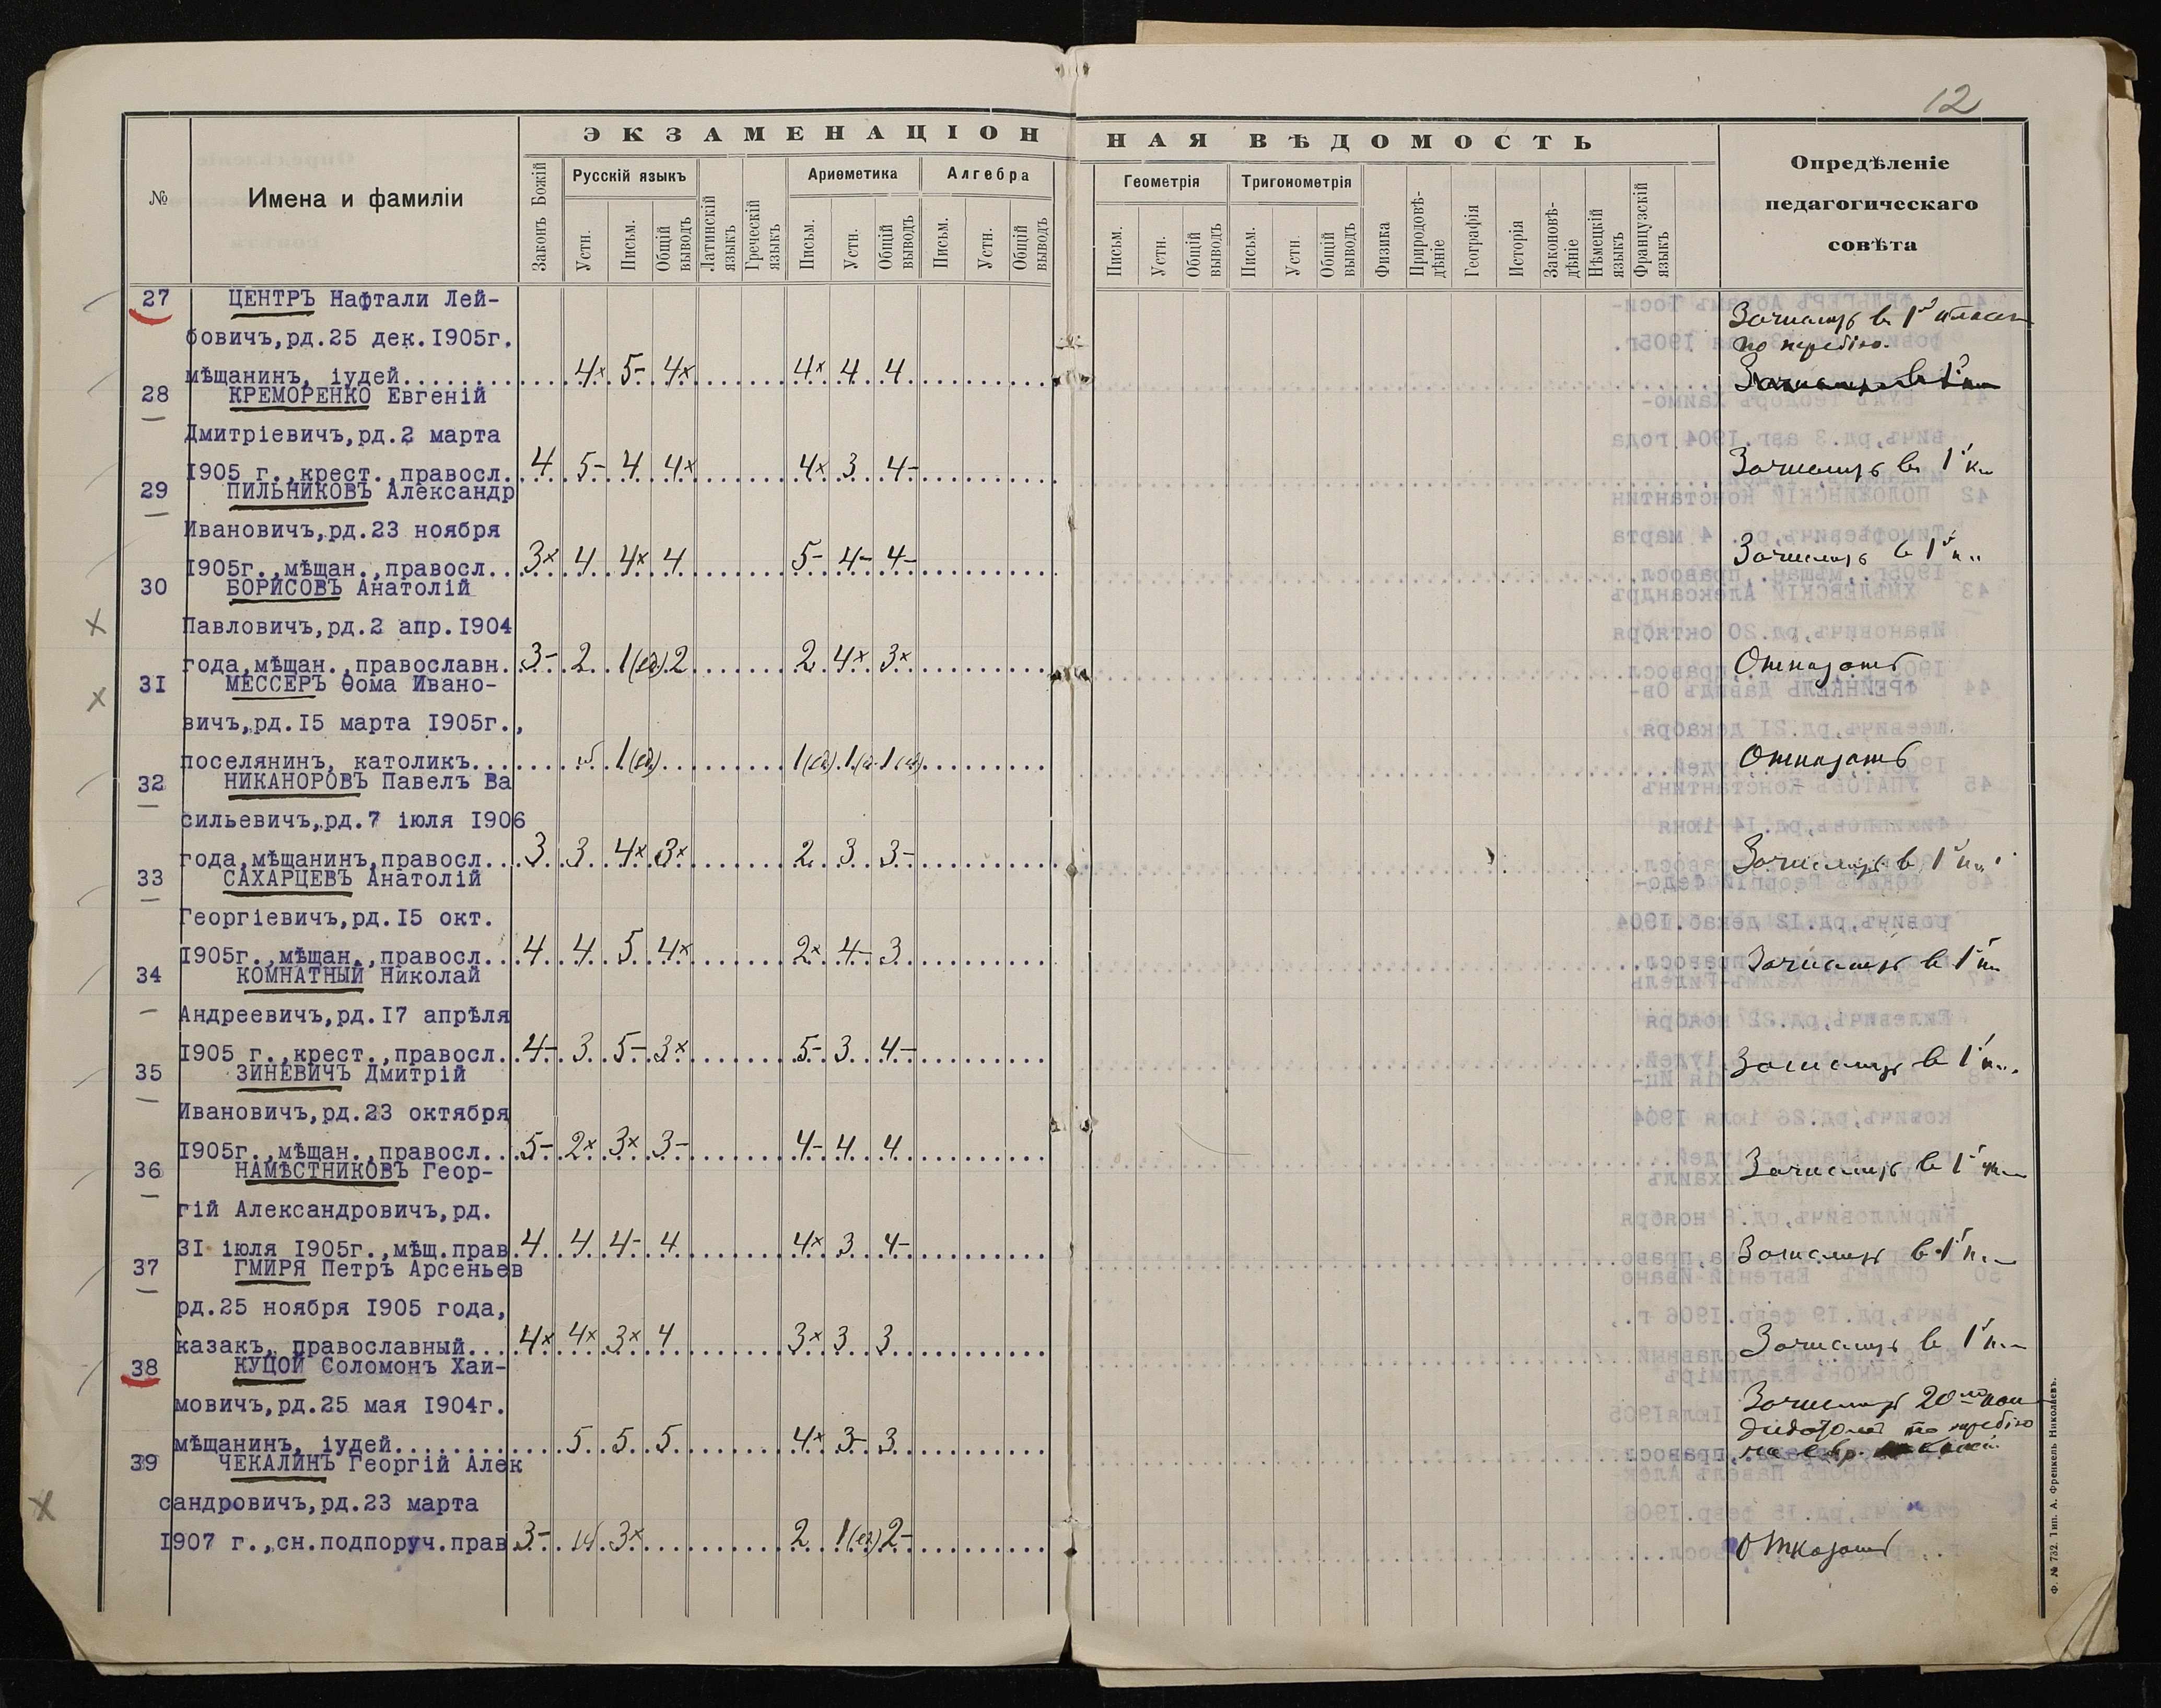 12
ЭКЗАМЕНАЦІОННАЯ ВѢДОМОСТЬ
№
Имена и фамиліи
Законъ Божій
Русскій языкъ
Устн.
Письм.
Общій выводъ
Латинскій языкъ
Греческій языкъ
Ариѳметика
Письм.
Устн.
Общій выводъ
Алгебра
Письм.
Устн.
Общій выводъ
Геометрія
Письм.
Устн.
Общій выводъ
Тригонометрія
Письм.
Устн.
Общій выводъ
Физика
Природовѣ-
дѣніе
Географія
Исторія
Законовѣ-
дѣніе
Нѣмецкій языкъ
Французскій языкъ
Опредѣленіе
педагогическаго
совѣта
27 ЦЕНТРЪ Нафтали Лей-
бовичъ,рд.25 дек.1905г.
мѣщанинъ, іудей 4× 5- 4× 4× 4 4
Зачислить в 1й классъ
по жребію.
28 КРЕМОРЕНКО Евгеній
Дмитріевичъ,рд.2 марта
1905 г.,крест.,правосл. 4 5- 4 4× 4× 3 4- Зачислить въ 1й кл
29 ПИЛЬНИКОВЪ Александр
Ивановичъ,рд.23 ноября
1905г.,мѣщан.,правосл. 3× 4 4× 4 5- 4- 4- Зачислить в 1й кл
30 БОРИСОВЪ Анатолій
Павловичъ,рд.2 апр.1904
года,мѣщан.,православн. 3- 2 1(ед) 2 2 4× 3× Отказать
31 МЕССЕРЪ Ѳома Ивано-
вичъ,рд.15 марта 1905г.,
поселянинъ, католикъ. 1(ед) 1(ед) 1(ед) 1(ед) Отказать
32 НИКАНОРОВЪ Павелъ Ва
сильевичъ,рд.7 іюля 1906
года,мѣщанинъ,правосл. 3 3 4× 3× 2 3 3- Зачислить в 1й кл
33 САХАРЦЕВЪ Анатолій
Георгіевичъ,рд.15 окт.
1905г.,мѣщан.,правосл. 4 4 5 4× 2× 4- 3 Зачислить в 1й кл
34 КОМНАТНЫЙ Николай
Андреевичъ,рд.17 апрѣля
1905 г.,крест.,правосл. 4- 3 5- 3× 5- 3 4- Зачислить в 1й кл.
35 ЗИНЕВИЧЪ Дмитрій
Ивановичъ,рд.23 октября
1905г.,мѣщан.,правосл. 5- 2× 3× 3- 4- 4 4 Зачислить в 1й кл
36 НАМѢСТНИКОВЪ Геор-
гій Александровичъ,рд.
31 іюля 1905г.,мѣщ.прав 4 4 4- 4 4× 3 4- Зачислить в 1й кл
37 ГМИРЯ Петръ Арсеньев
рд.25 ноября 1905 года,
казакъ, православный. 4× 4× 3× 4 3× 3 3 Зачислить в 1й кл
38 КУЦОЙ Соломонъ Хаи-
мовичъ,рд.25 мая 1904г.
мѣщанинъ, іудей 5 5 5 4× 3- 3
Зачислить 20-мъ кан
дидатомъ по жребію
на евр.
39 ЧЕКАЛИНЪ Георгій Алек
сандровичъ,рд.23 марта
1907 г.,сн.подпоруч.прав 3- 3× 2 1(ед) 2- Отказать
Ф. № 732. Тип. А. Френкель Николаевъ.